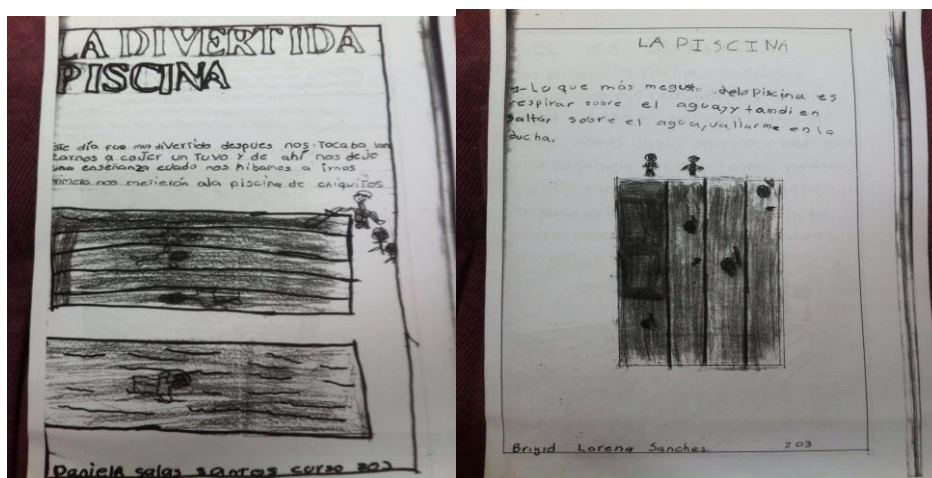 LA DIVERTIDA
PISCINA
Este día fue muy divertido despues nos tocaba lan
zarnos a cojer un tuvo y de ahí nos dejo
una enseñanza cuado nos hibamos a irnos
primero nos metierón ala piscina de chiquitos
Daniela salas santos curso 203
LA PISCINA
Lo que más megusto dela piscina es
respirar sobre el agua,y tamdien
saltar sobre el agua,vallarme en la
ducha.
Briyid Lorena Sanchez 203